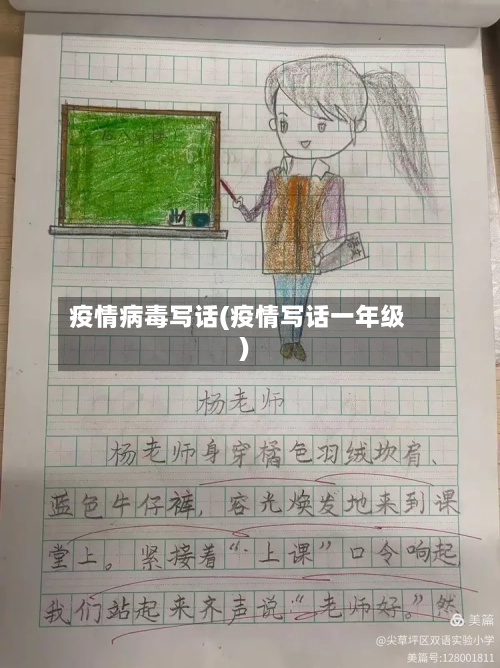 疫情病毒写话(疫情写话一年级
)
杨老师
杨老师身穿橘色羽绒坎肩、
蓝色牛仔裤，容光焕发地来到课
堂上。紧接着“上课”口令响起，
我们站起来齐声说“老师好。”然
美篇
@尖草坪区双语实验小学
美篇号:128001811